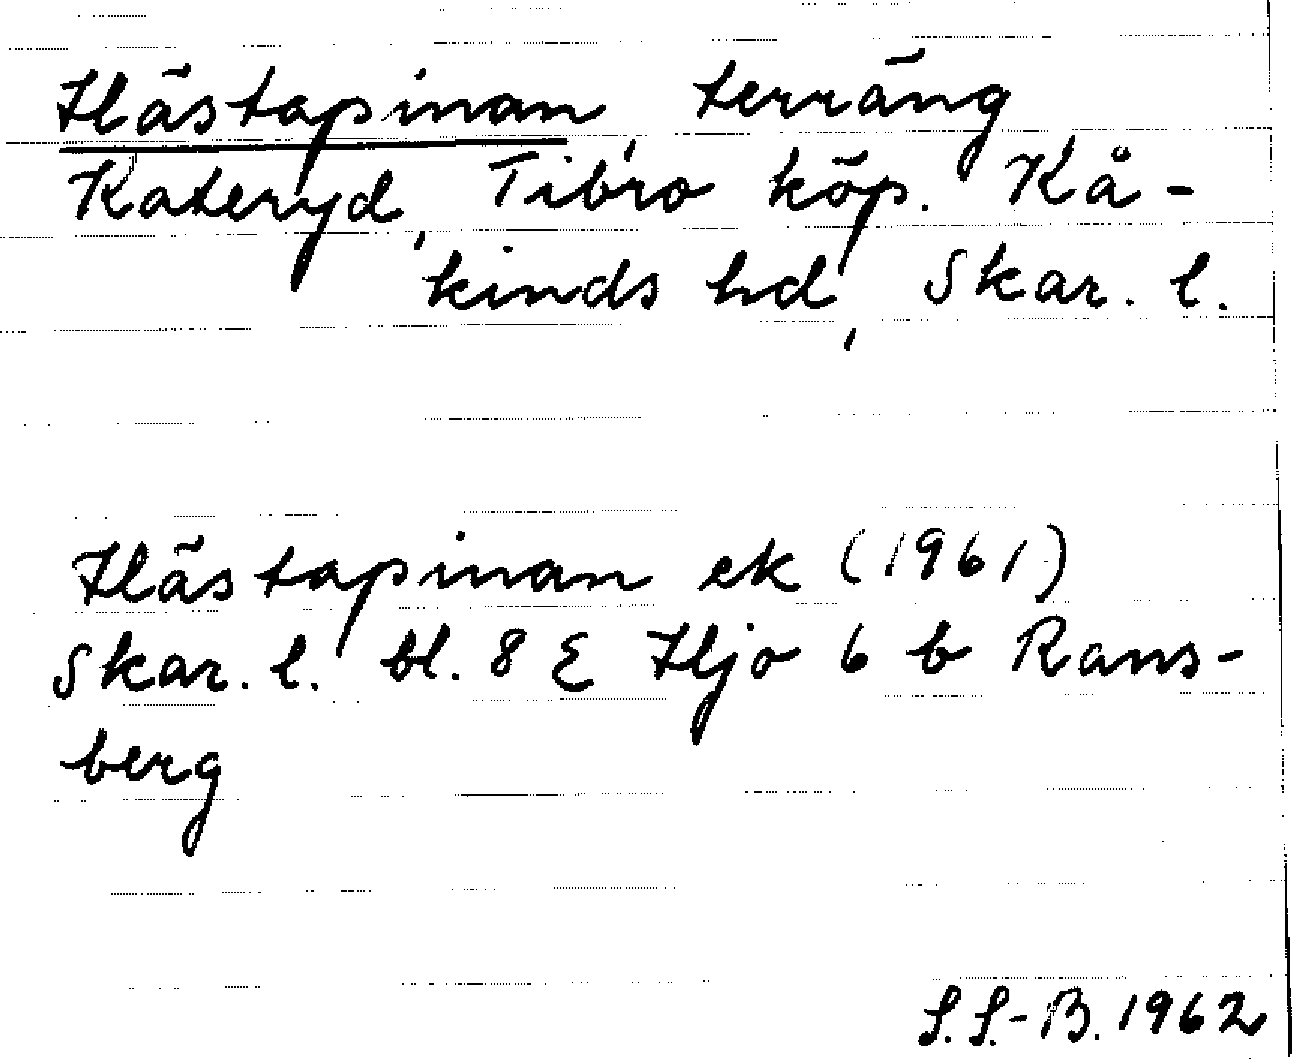 Hästapinan, terräng
Kateryd, Tibro köp. Kå-
kinds hd, Skar. l.
Hästapinan ek (1961)
Skar. l. bl. 8 E Hjo 6 b Rans-
berg
S.S.-B. 1962